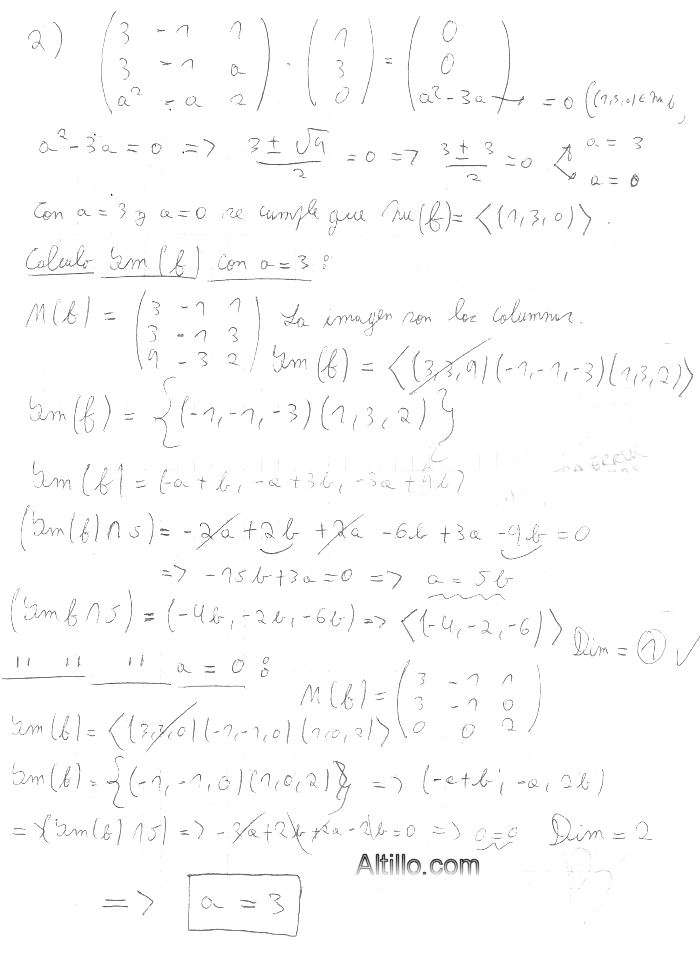 2) (3 -1 1 / 3 -1 a / a² -a 2) · (1 / 3 / 0) = (0 / 0 / a² - 3a) → = 0 ((1,3,0) ∈ Nu f)
a² - 3a = 0 => (3 ± √9)/2 = 0 => (3 ± 3)/2 = 0 a = 3
a = 0
Con a = 3 y a = 0 se cumple que Nu(f) = <(1,3,0)>.
Calculo Im(f) con a = 3 :
M(f) = (3 -1 1 / 3 -1 3 / 9 -3 2) La imagen son las columnas.
Im(f) = <(3,3,9)(-1,-1,-3)(1,3,2)>
Im(f) = {(-1,-1,-3)(1,3,2)}
Im(f) = (-a+b, -a+3b, -3a+9b)
(Im(f) ∩ S) = -2a + 2b + 2a - 6b + 3a - 9b = 0
=> -15b + 3a = 0 => a = 5b
(Im f ∩ S) = (-4b, -2b, -6b) => <(-4,-2,-6)> Dim = 1 ✓
" " " a = 0 :
M(f) = (3 -1 1 / 3 -1 0 / 0 0 2)
Im(f) = <(3,3,0)(-1,-1,0)(1,0,2)>
Im(f) = {(-1,-1,0)(1,0,2)} => (-a+b, -a, 2b)
= (Im(f) ∩ S) => -2a + 2b + 2a - 2b = 0 => 0 = 0 Dim = 2
Altillo.com
=> a = 3